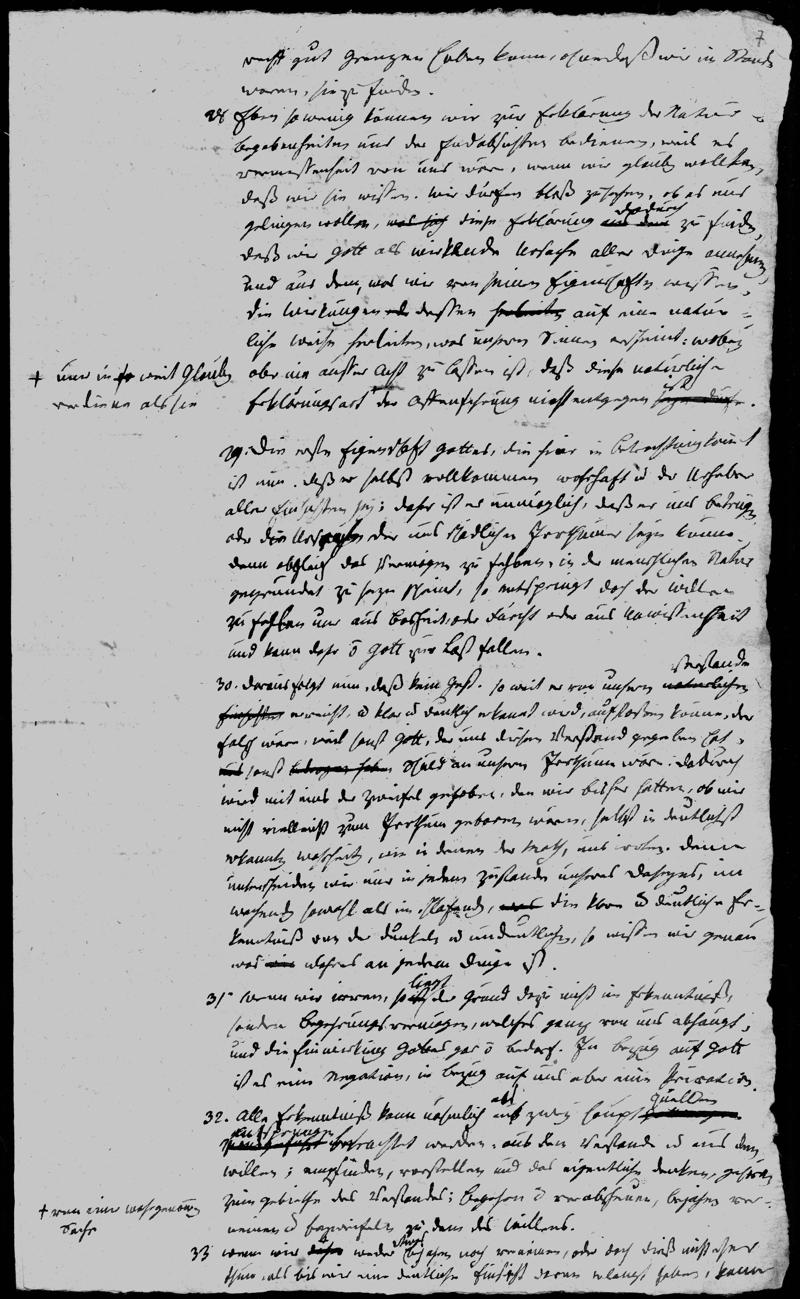 7
recht gut Grenzen haben kann, ohne daß wir im Stande
wären, sie zu finden.
28 Eben so wenig können wir zur Erklärung der Natur-
begebenheiten uns der Endabsichten bedienen, weil es
Vermessenheit von uns wäre, wenn wir glauben wollten,
daß wir sie wissen. Wir dürfen bloß zusehen, ob es uns
gelingen wolle, diese Erklärung dadurch zu finden,
daß wir Gott als wirkende Ursache aller Dinge annehmen,
und aus dem, was wir von seinen Eigenschaften wissen,
die Wirkungen dessen auf eine natür-
liche Weise herleiten, was unsern Sinnen erscheint: wobey
aber nie ausser Acht zu lassen ist, daß diese natürliche
+ nur in so weit Glauben
verdiene als sie
Erklärungsart der Offenbarung nicht entgegen ist.
29. Die erste Eigenschaft Gottes, die hier in Betrachtung kömmt
ist nun, daß er selbst vollkommen wahrhaft u der Urheber
aller Einsichten sey; daher ist es unmöglich, daß er uns betrüge,
oder die Ursache der uns schädlichen Irrthümer seyn könne.
denn obgleich das Vermögen zu fehlen, in der menschlichen Natur
gegründet zu seyn scheint, so entspringt doch der Willen
zu fehlen nur aus Bosheit, oder Furcht oder aus Unwissenheit
und kann daher Gott zur Last fallen.
30. Daraus folgt nun, daß kein Gegst. so weit er von unserm Verstande
erreicht, u klar u deutlich erkannt wird, aufstossen könne, der
falsch wäre, weil sonst Gott, der uns diesen Verstand gegeben hat,
Schuld an unserm Irrthum wäre: dadurch
wird mit eins der Zweifel gehoben, den wir bisher hatten, ob wir
nicht vielleicht zum Irrthum geboren wären, selbst in deutlichst
erkannten Wahrheiten, wie in denen der Math, uns irrten. Denn
unterscheiden wir nur in jedem Zustande unseres Daseyns, im
wachenden sowohl als im schlafenden, die klare u deutliche Er-
kenntniß von der dunkeln u undeutlichen, so wissen wir genau
was wahres an jedem Dinge ist.
31 Wenn wir irren, liegt der Grund dazu nicht im Erkenntniß,
sondern Begehrungsvermögen, welches ganz von uns abhängt,
und die Einwirkung Gottes gar bedarf. In Bezug auf Gott
ist es eine Negation, in Bezug auf uns aber eine Privation.
32. Alle Erkenntniß kann nähmlich als aus zwey Hauptquellen
entsprungen betrachtet werden, aus dem Verstande u aus dem
Willen; empfinden, vorstellen und das eigentliche denken, gehören
zum Gebiethe des Verstandes; begehren u verabscheuen, bejahen ver-
neinen u bezweifeln zu dem des Willens.
+ von einer wahrgenommenen
Sache
33 Wenn wir weder etwas bejahen noch verneinen, oder doch dieß nicht eher
thun, als bis wir eine deutliche Einsicht davon erlangt haben, kann